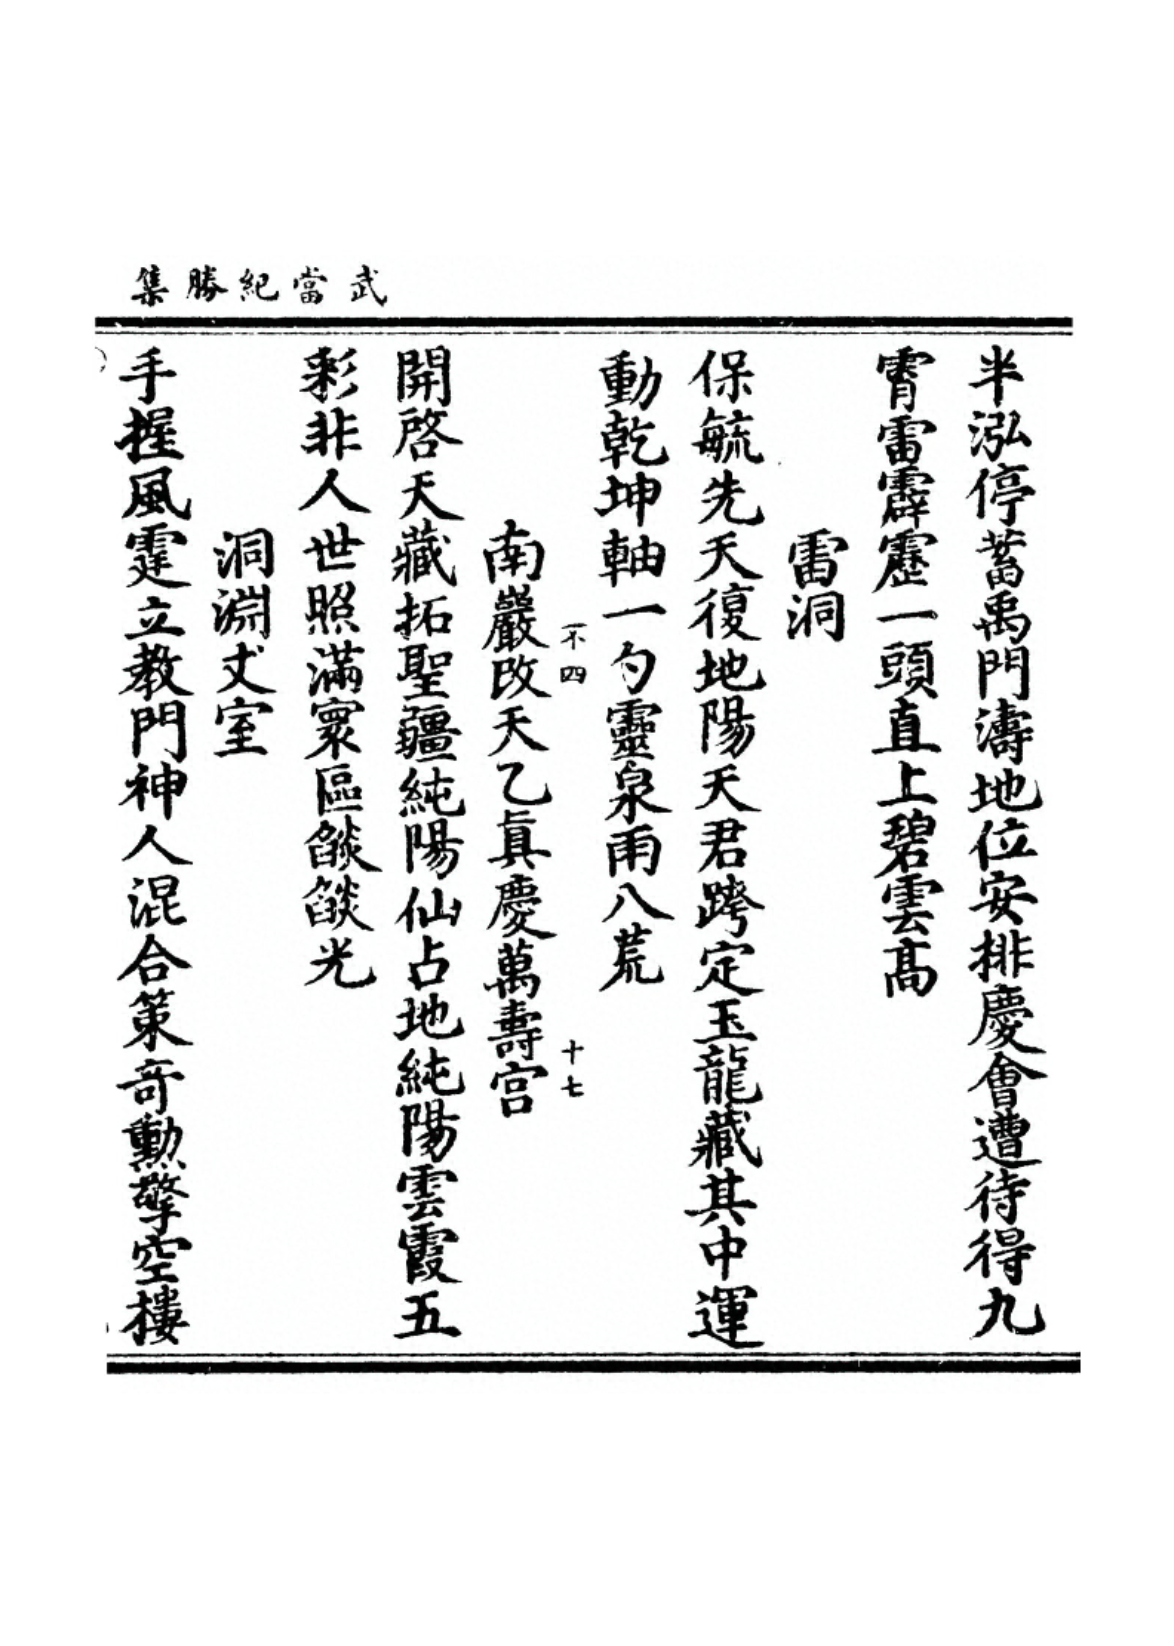 武當紀勝集
半泓停蓄禹門濤地位安排慶會遭待得九
霄雷霹靂一頭直上碧雲高
雷洞
保毓先天復地陽天君跨定玉龍藏其中運
動乾坤軸一勺靈泉雨八荒
不四
十七
南巖改天乙眞慶萬壽宮
開啓天藏拓聖疆純陽仙占地純陽雲霞五
彩非人世照滿寰區燄燄光
洞淵丈室
手握風霆立教門神人混合策奇勳擎空樓